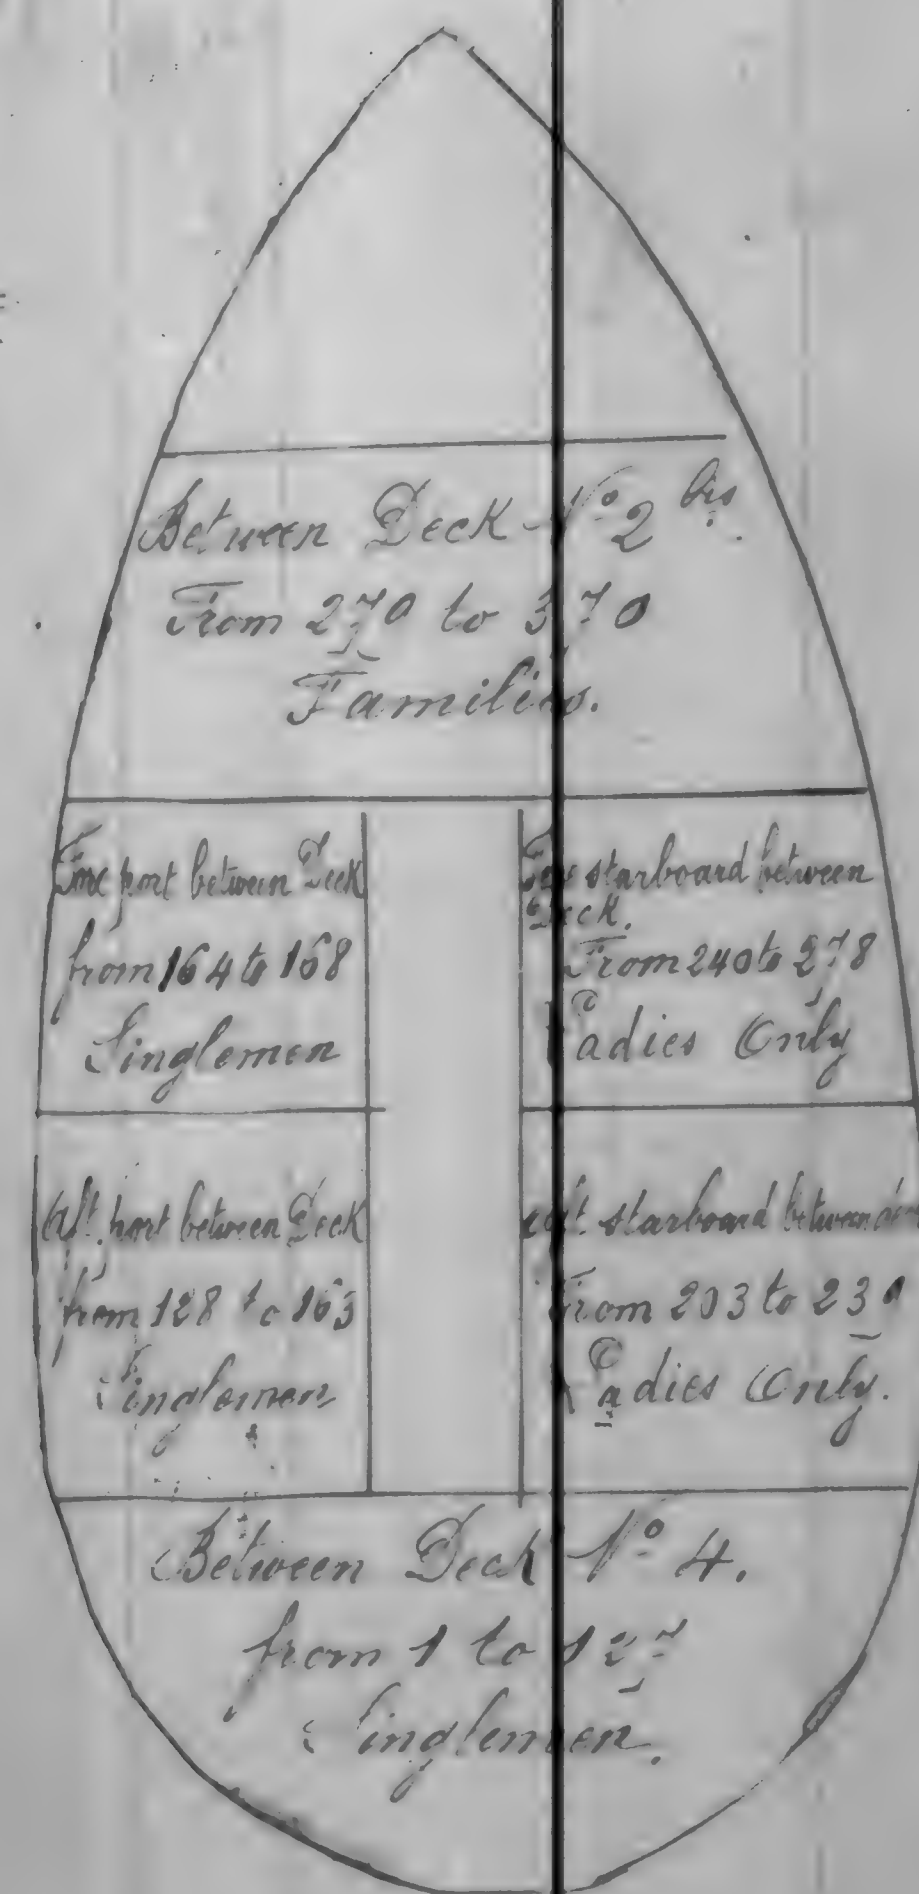 Between Deck Nº 2 bis.
From 270 to 370
Families.
Fore port between Deck
from 164 to 168
Singlemen
Fore starboard between
Deck.
From 240 to 278
Ladies Only
Aft. port between Deck
from 128 to 163
Singlemen
Aft. starboard between
From 203 to 230
Ladies Only.
Between Deck Nº 4.
from 1 to 127
Singlemen.